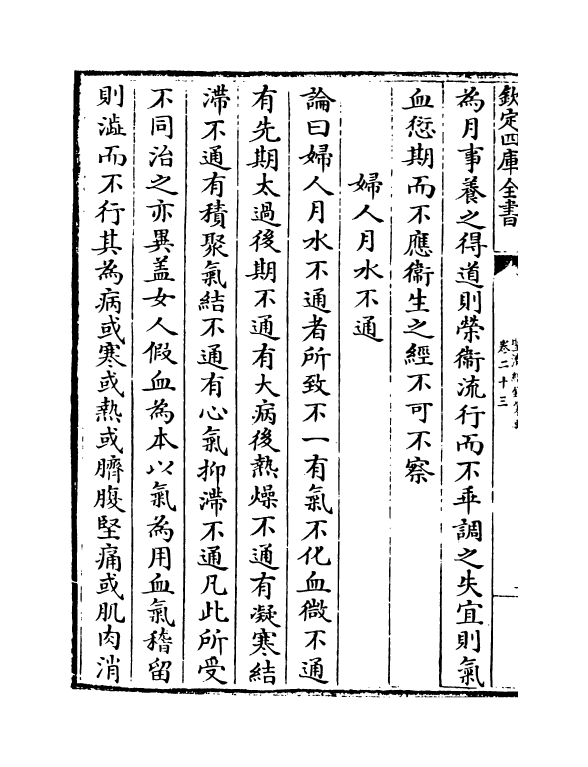 欽定四庫全書
卷二十三
為月事養之得道則榮衞流行而不乖調之失宜則氣
血愆期而不應衞生之經不可不察
婦人月水不通
論曰婦人月水不通者所致不一有氣不化血微不通
有先期太過後期不通有大病後熱燥不通有凝寒結
滯不通有積聚氣結不通有心氣抑滯不通凡此所受
不同治之亦異蓋女人假血為本以氣為用血氣稽留
則澁而不行其為病或寒或熱或臍腹堅痛或肌肉消